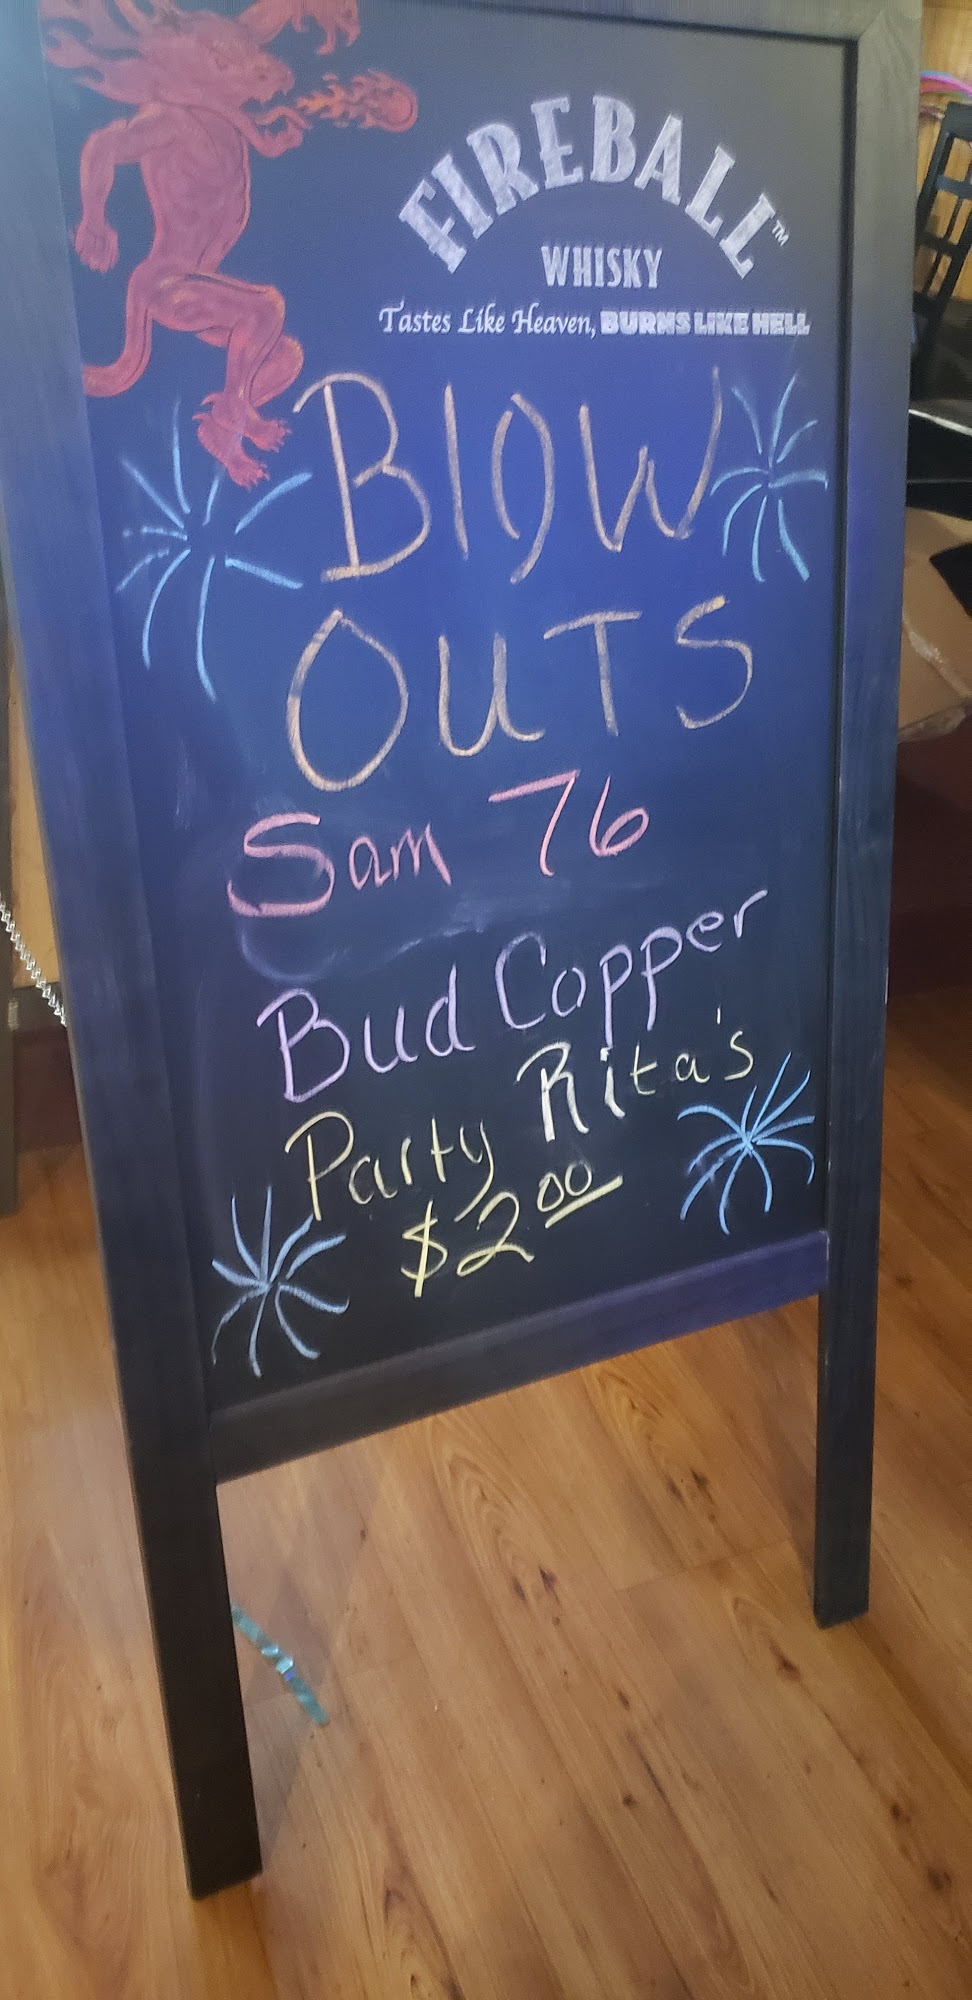 FIREBALL™
WHISKY
Tastes Like Heaven, BURNS LIKE HELL
BlOW
OUTS
Sam 76
Bud Copper
Party Rita's
$2.00